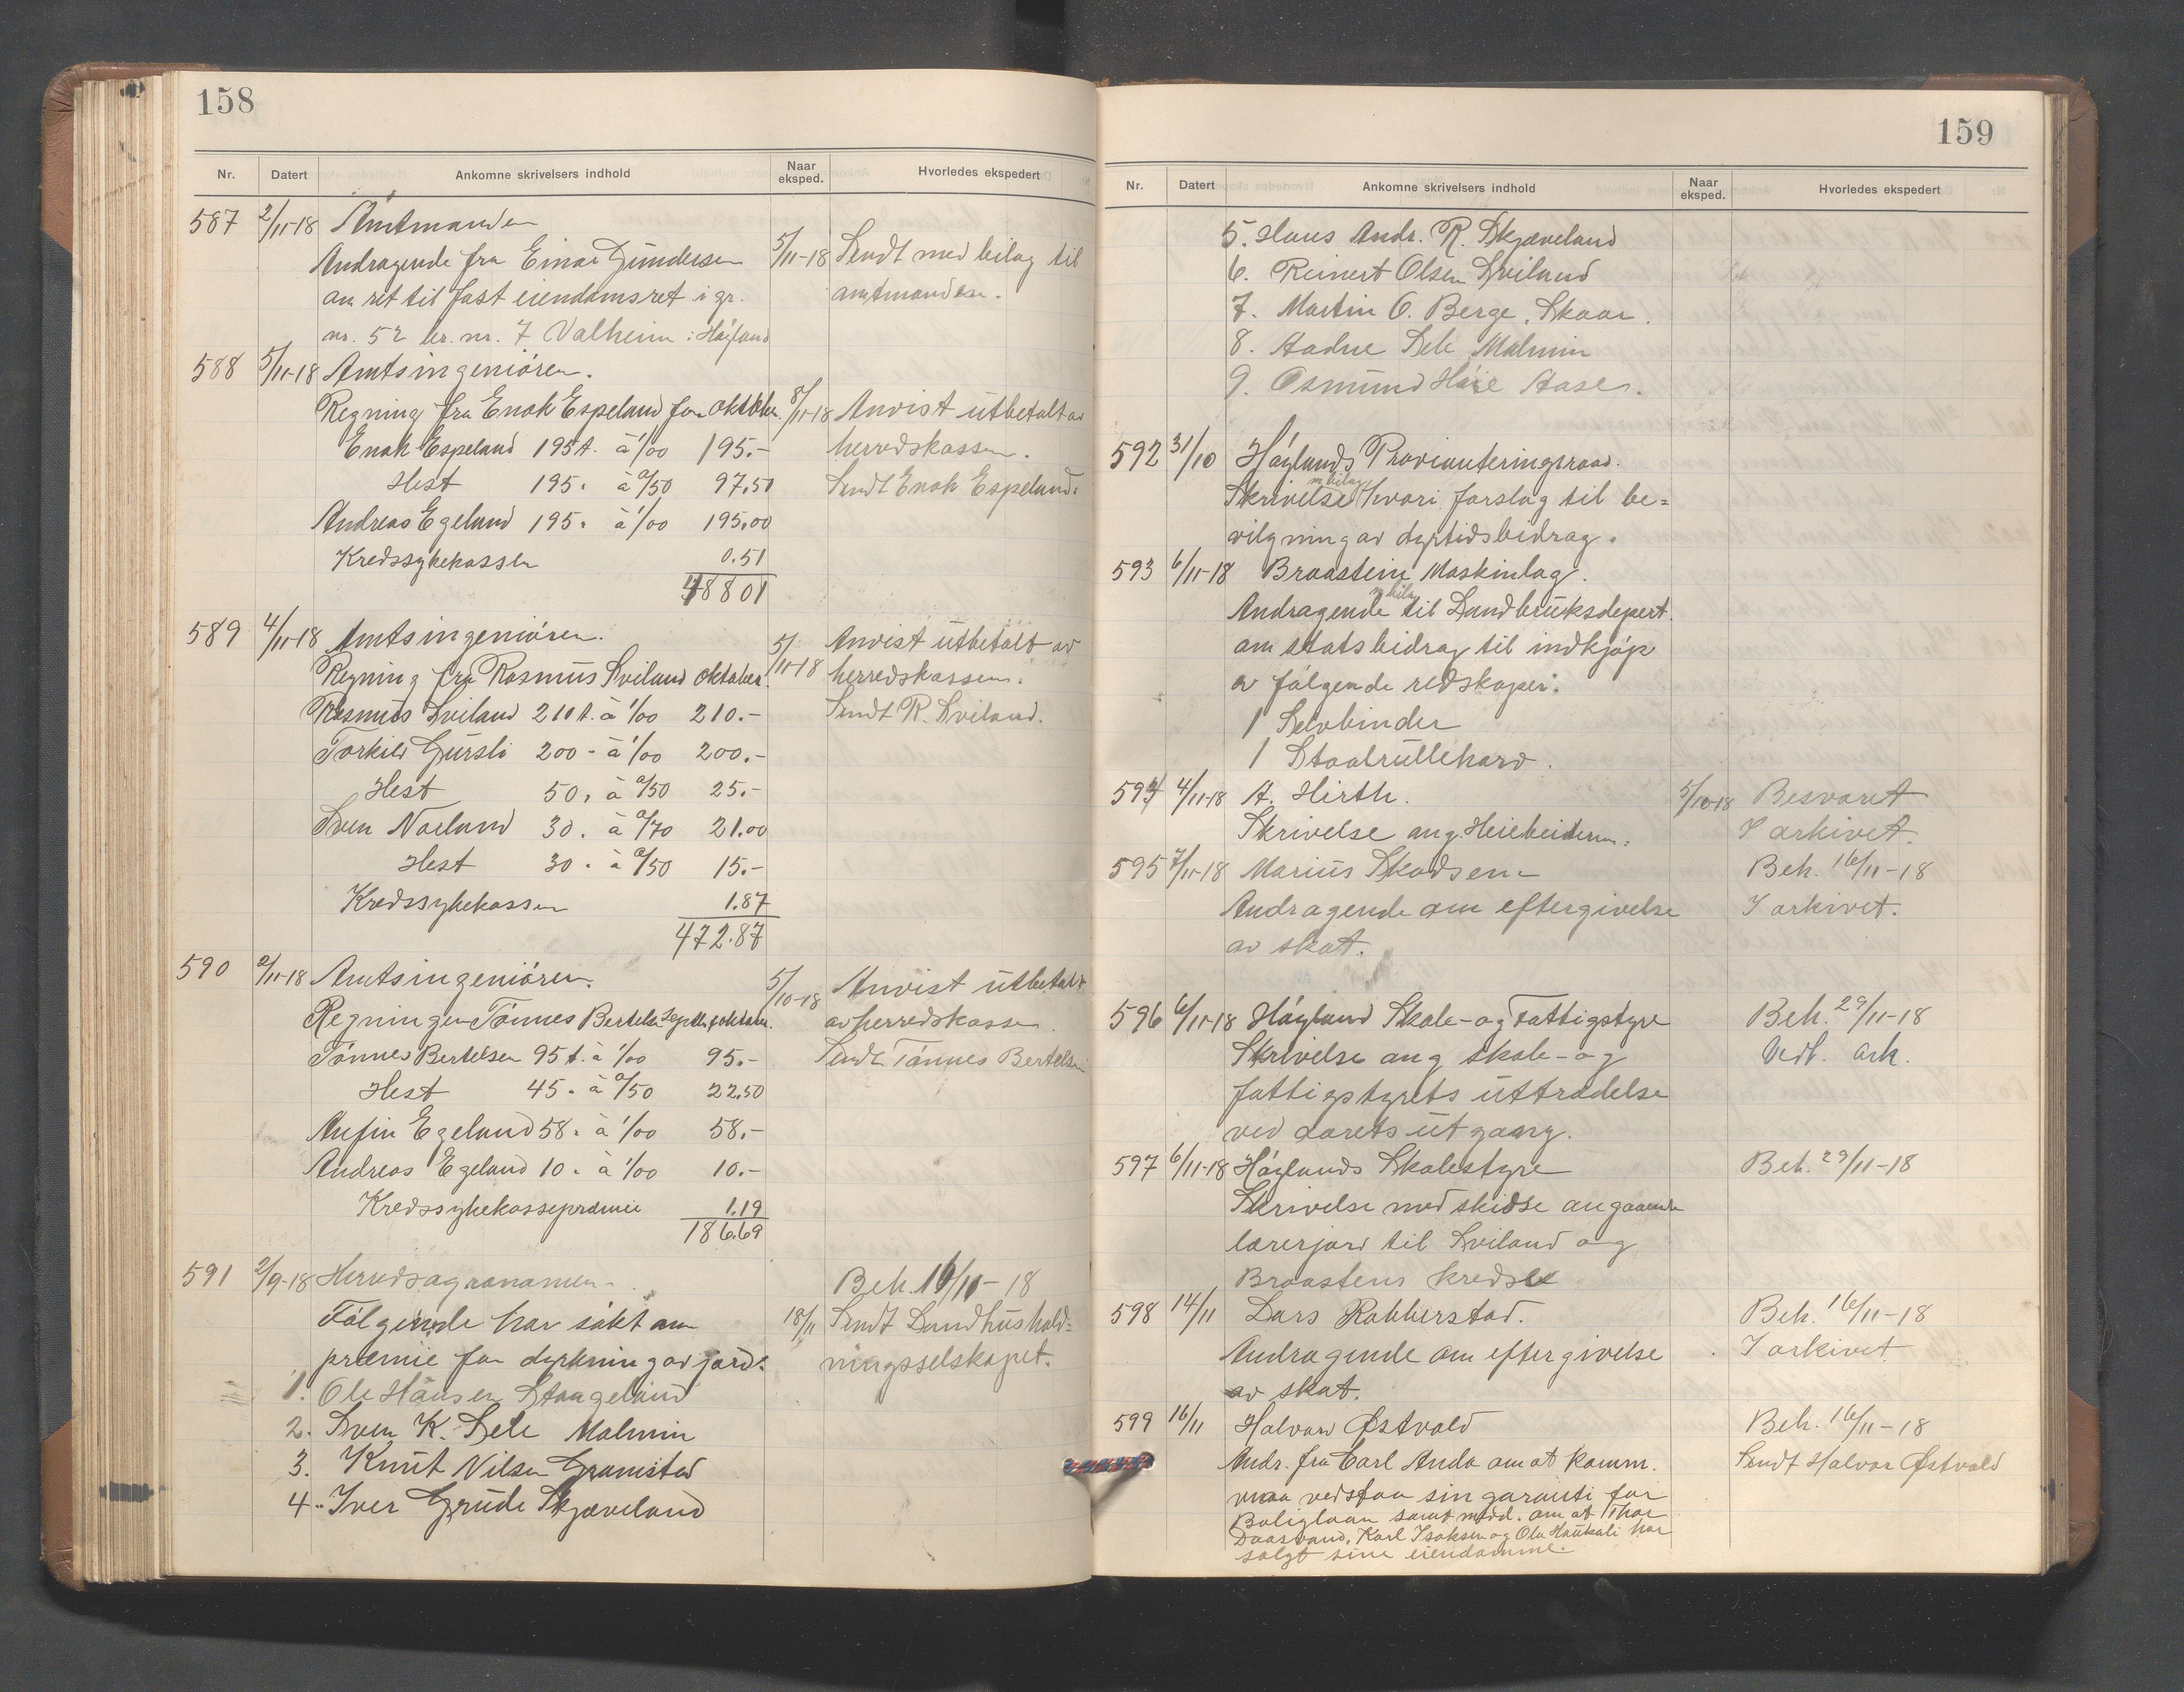 158
Nr. Datert Ankomne skrivelsers indhold Naar eksped. Hvorledes ekspedert
587 2/11-18 Amtmanden
Andragende fra Einar Gundersen 5/11-18 Sendt med bilag til
om ret til fast eiendomsret i gr. amtmanden.
nr. 52 br. nr. 7 Valheim i Høiland
588 5/11-18 Amtsingeniören.
Regning fra Enok Espeland for oktober. 8/11-18 Anvist utbetalt av
Enok Espeland 195 t. à 1/00 195.- herredskassen.
Hest 195 " à 0/50 97.50 Sendt Enok Espeland.
Andreas Egeland 195 " à 1/00 195.00
Kredssykekassen 0.51
488 01
589 4/11-18 Amtsingeniören.
Regning fra Rasmus Sviland oktober. 5/11-18 Anvist utbetalt av
herredskassen.
Rasmus Sviland 210 t. à 1/00 210.- Sendt R. Sviland.
Torkild Gursli 200 - à 1/00 200.-
Hest 50 " à 0/50 25.-
Sven Norland 30 " à 0/70 21.00
Hest 30 " à 0/50 15.-
Kredssykekassen 1.87
472.87
590 2/11-18 Amtsingeniören. 5/10-18 Anvist utbetalt
Regningen Tönnes Bertelsen Septbr. & oktober. av herredskassen.
Tönnes Bertelsen 95 t. à 1/00 95.- Sendt Tönnes Bertelsen
Hest 45 " à 0/50 22.50
Anfin Egeland 58 " à 1/00 58.-
Andreas Egeland 10 " à 1/00 10.-
Kredssykekassepræmie 1.19
186.69
591 2/9-18 Herredsagronomen. Beh. 16/11-18
Fölgende har sökt om 18/11 Sendt Landhushold-
præmie for dyrkning av jord: ningsselskapet.
1. Ole Hansen Stangeland
2. Sven K. Sele Malmin
3. Knut Nilsen Gramstad
4. Iver Grude Skjæveland
159
Nr. Datert Ankomne skrivelsers indhold Naar eksped. Hvorledes ekspedert
5. Hans Andr. R. Skjæveland
6. Reinert Olsen Sviland
7. Martin O. Berge, Skaar.
8. Aadne Sele Malmin
9. Osmund Høie Aasen.
592 31/10 Höylands Provianteringsraad.
Skrivelse m bilag hvori forslag til be-
vilgning av dyrtidsbidrag.
593 6/11-18 Braastein Maskinlag.
Andragende m bilag til Landbruksdepart.
om statsbidrag til indkjöp
av fölgende redskaper:
1 Selvbinder
1 Staalrulleharv.
594 4/11-18 A. Hirth. 5/10-18 Besvaret
Skrivelse ang. Heiebeitene. I arkivet.
595 7/11-18 Marius Skadsem Beh. 16/11-18
Andragende om eftergivelse I arkivet.
av skat.
596 6/11-18 Höyland Skole- og Fattigstyre Beh. 29/11-18
Skrivelse ang skole- og Vedt. Ark.
fattigstyrets uttrædelse
ved aarets utgaang.
597 6/11-18 Höylands Skolestyre Beh. 29/11-18
Skrivelse med skidse angaaende
lærerjord til Sviland og
Braastens kreds
598 14/11 Lars Robberstad. Beh. 16/11-18
Andragende om eftergivelse I arkivet
av skat.
599 16/11 Halvar Østvold Beh. 16/11-18
Andr. fra Carl Anda om at komm. Sendt Halvar Østvold
maa vedstaa sin garanti for
Boliglaan samt medd. om at Thor
Daasvand, Karl Isaksen og Ola Haukali har
solgt sine eiendomme.